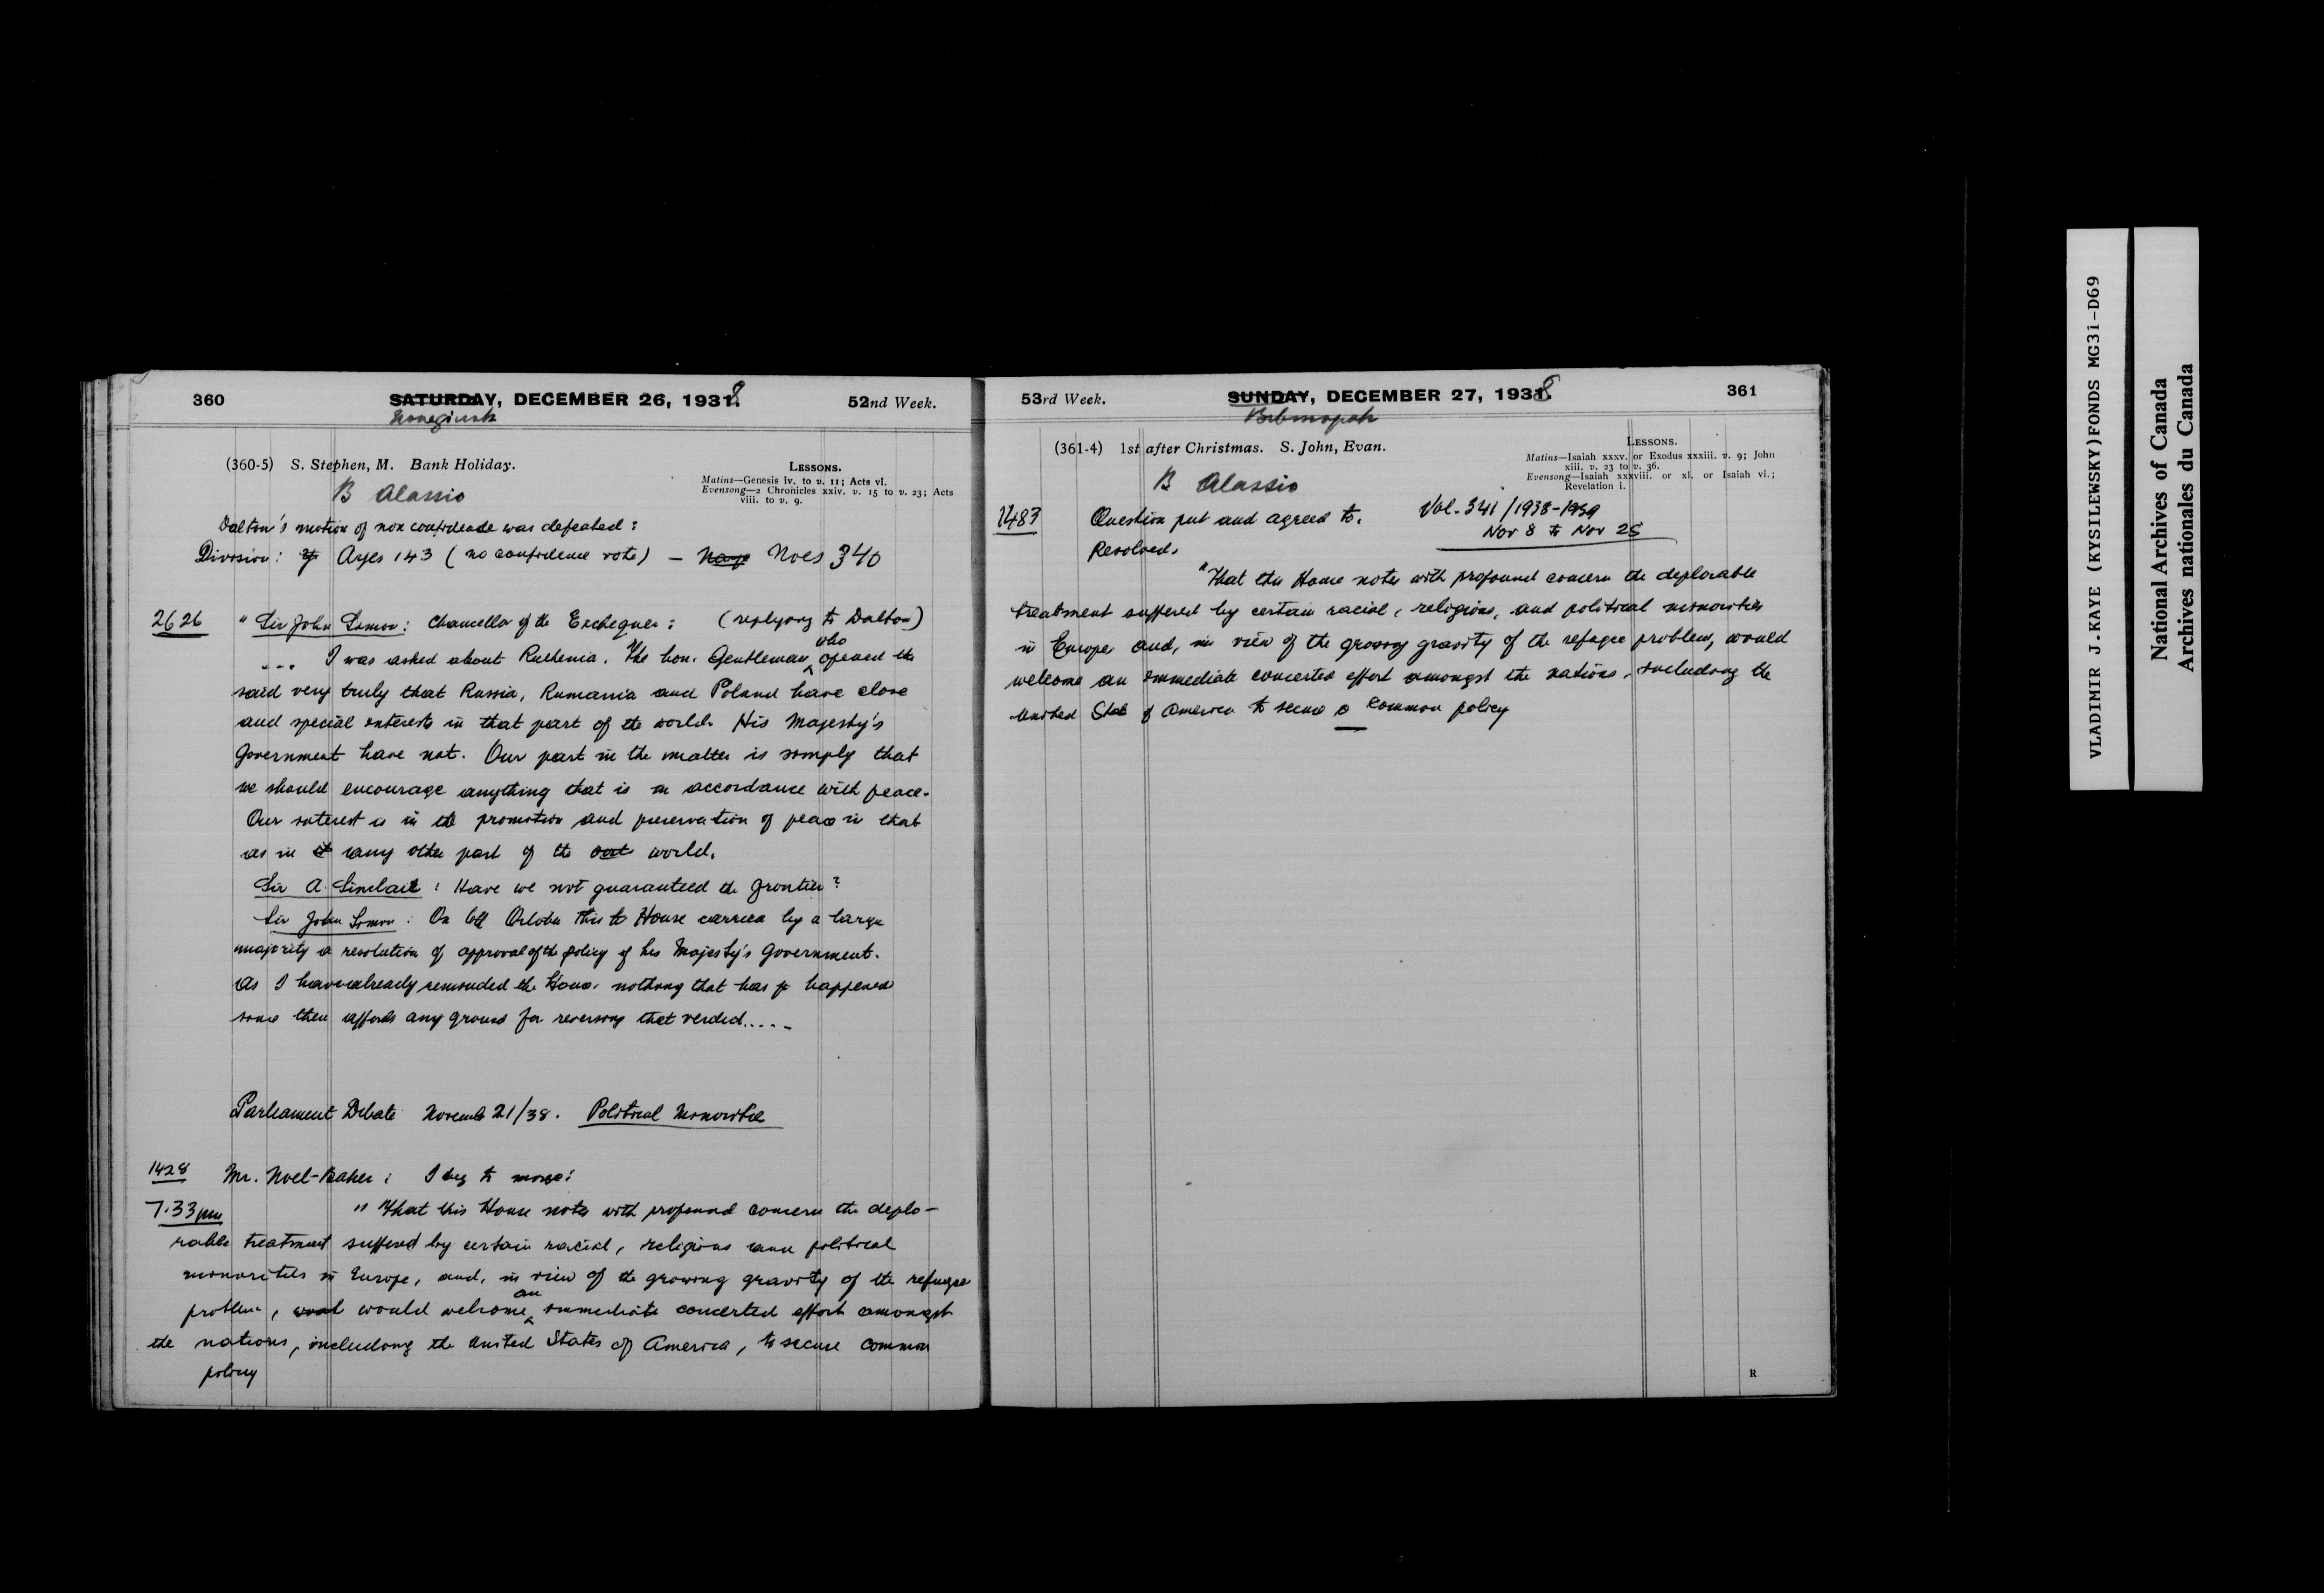 360 SATURDAY, DECEMBER 26, 1938 52nd Week.
(360-5) S. Stephen, M. Bank Holiday.
LESSONS.
Matins—Genesis iv. to v. 11; Acts vi.
Evensong—2 Chronicles xxiv. v. 15 to v. 23; Acts
viii. to v. 9.
В Alassio
Dalton's motion of non confidence was defeated:
Division: Ayes 143 (no confidence vote) — Noes 340
2626 " Sir John Simon: Chancellor of the Exchequer: (replying to Dalton)
... I was asked about Ruthenia. The hon. Gentleman who opened the
said very truly that Russia, Rumania and Poland have close
and special interests in that part of the world. His Majesty's
Government have not. Our part in the matter is simply that
we should encourage anything that is in accordance with peace.
Our interest is in the promotion and preservation of peace in that
as in any other part of the world.
Sir A. Sinclair: Have we not guaranteed the frontier?
Sir John Simon: On 6th October this House carried by a large
majority a resolution of approval of the policy of His Majesty's Government.
As I have already reminded the House, nothing that has happened
since then affords any ground for reversing that verdict.....
Parliament Debate November 21/38. Political Minorities
1428 Mr. Noel-Baker: I beg to move:
7.33 pm " That this House notes with profound concern the deplo-
rable treatment suffered by certain racial, religious and political
minorities in Europe, and, in view of the growing gravity of the refugee
problem, would welcome an immediate concerted effort amongst
the nations, including the United States of America, to secure common
policy
53rd Week. SUNDAY, DECEMBER 27, 1938 361
(361-4) 1st after Christmas. S. John, Evan.
LESSONS.
Matins—Isaiah xxxv. or Exodus xxxiii. v. 9; John
xiii. v. 23 to v. 36.
Evensong—Isaiah xxxviii. or xl. or Isaiah vi.;
Revelation i.
В Alassio
1483 Question put and agreed to. Vol. 341/1938-1939
Nov 8 to Nov 25
Resolved,
"That this House notes with profound concern the deplorable
treatment suffered by certain racial, religious, and political minorities
in Europe and, in view of the growing gravity of the refugee problem, would
welcome an immediate concerted effort amongst the nations, including the
United State of America to secure a common policy
R
VLADIMIR J.KAYE (KYSILEWSKY)FONDS MG31-D69
National Archives of Canada
Archives nationales du Canada